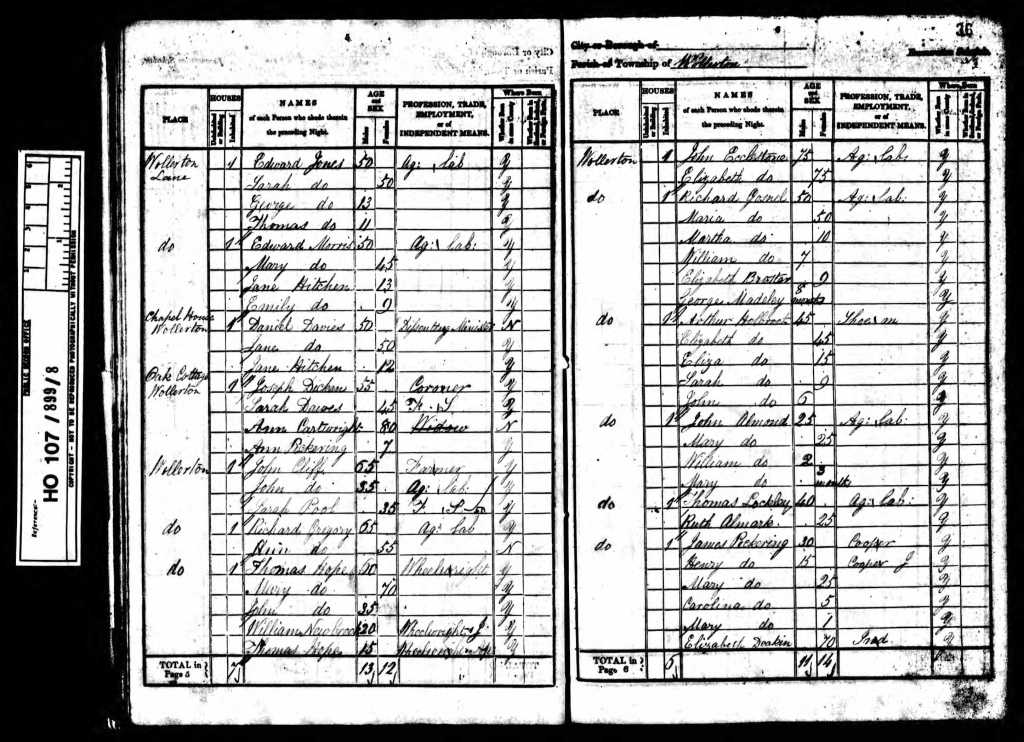 PUBLIC RECORD OFFICE
Reference:-
HO 107 / 899 / 8
COPYRIGHT - NOT TO BE REPRODUCED PHOTOGRAPHICALLY WITHOUT PERMISSION
4
PLACE HOUSES NAMES of each Person who abode therein the preceding Night. AGE and SEX PROFESSION, TRADE, EMPLOYMENT, or of INDEPENDENT MEANS. Where Born
Uninhabited or Building Inhabited Males Females Whether Born in same County
Wollerton Lane 1 Edward Jones 50 Ag: Lab y
Sarah do 50 y
George do 13 y
Thomas do 11 y
do 1 Edward Morris 50 Ag: Lab: y
Mary do 45 y
Jane Hitchen 13 y
Emily do 9 y
Chapel House Wollerton 1 Daniel Davies 50 Dissenting Minister N
Jane do 50 y
Jane Hitchen 12 y
Oak Cottage Wollerton 1 Joseph Dicken 55 y
Sarah Davies 45 F. S. y
Ann Cartwright 80 Widow N
Ann Pickering 7 y
Wollerton 1 John Cliffe 65 Farmer y
John do 35 Ag: Lab: y
Sarah Pool 35 F. S. y
do 1 Richard Gregory 65 Ag: Lab y
Ann do 55 N
do 1 Thomas Hope Wheelwright y
Mary do 70 y
John do 35 y
William 20 Wheelwright J y
Thomas Hope 15 y
TOTAL in Page 5 7 13 12
36
City or Borough of
Parish or Township of Wollerton
Enumeration Schedule.
PLACE HOUSES NAMES of each Person who abode therein the preceding Night. AGE and SEX PROFESSION, TRADE, EMPLOYMENT, or of INDEPENDENT MEANS. Where Born
Uninhabited or Building Inhabited Males Females Whether Born in same County
Wollerton 1 John Ecclestone 75 Ag: Lab: y
Elizabeth do 75 y
do 1 Richard 50 Ag: Lab: y
Maria do 50 y
Martha do 10 y
William do 7 y
Elizabeth 9 y
George Madeley 8 months y
do 1 Arthur Holbrook 45 y
Elizabeth do 45 y
Eliza do 15 y
Sarah do 9 y
John do 6 y
do 1 John Almond 25 Ag: Lab: y
Mary do 25 y
William do 2 y
Mary do 3 months y
do 1 Thomas Lockley 40 Ag: Lab: y
Ruth Almark 25 y
do 1 James Pickering 30 Cooper y
Henry do 15 Cooper J y
Mary do 25 y
Carolina do 5 y
Mary do 1 y
Elizabeth Deakin 70 Ind y
TOTAL in Page 6 6 11 14